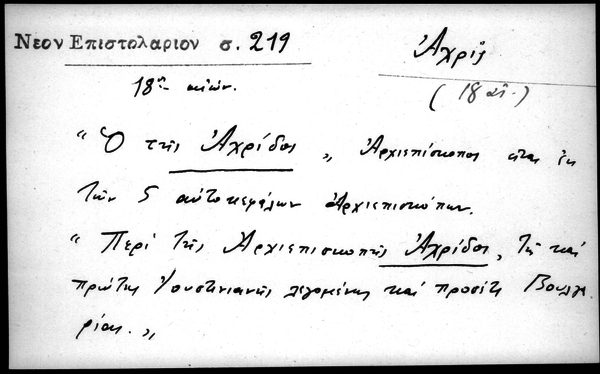 Νεον Επιστολαριον σ. 219
Ἀχρίς
18ος αἰών.
(18 αἰ.)
"Ὁ τῆς Ἀχρίδος „ Ἀρχιεπίσκοπος εἷς ἐκ
τῶν 5 αὐτοκεφάλων ἀρχιεπισκόπων.
"Περί τῆς Ἀρχιεπισκοπῆς Ἀχρίδος, τῆς καί
πρώτης Ἰουστινιανῆς λεγομένης καί προσέτι Βουλγα
ρίας.„